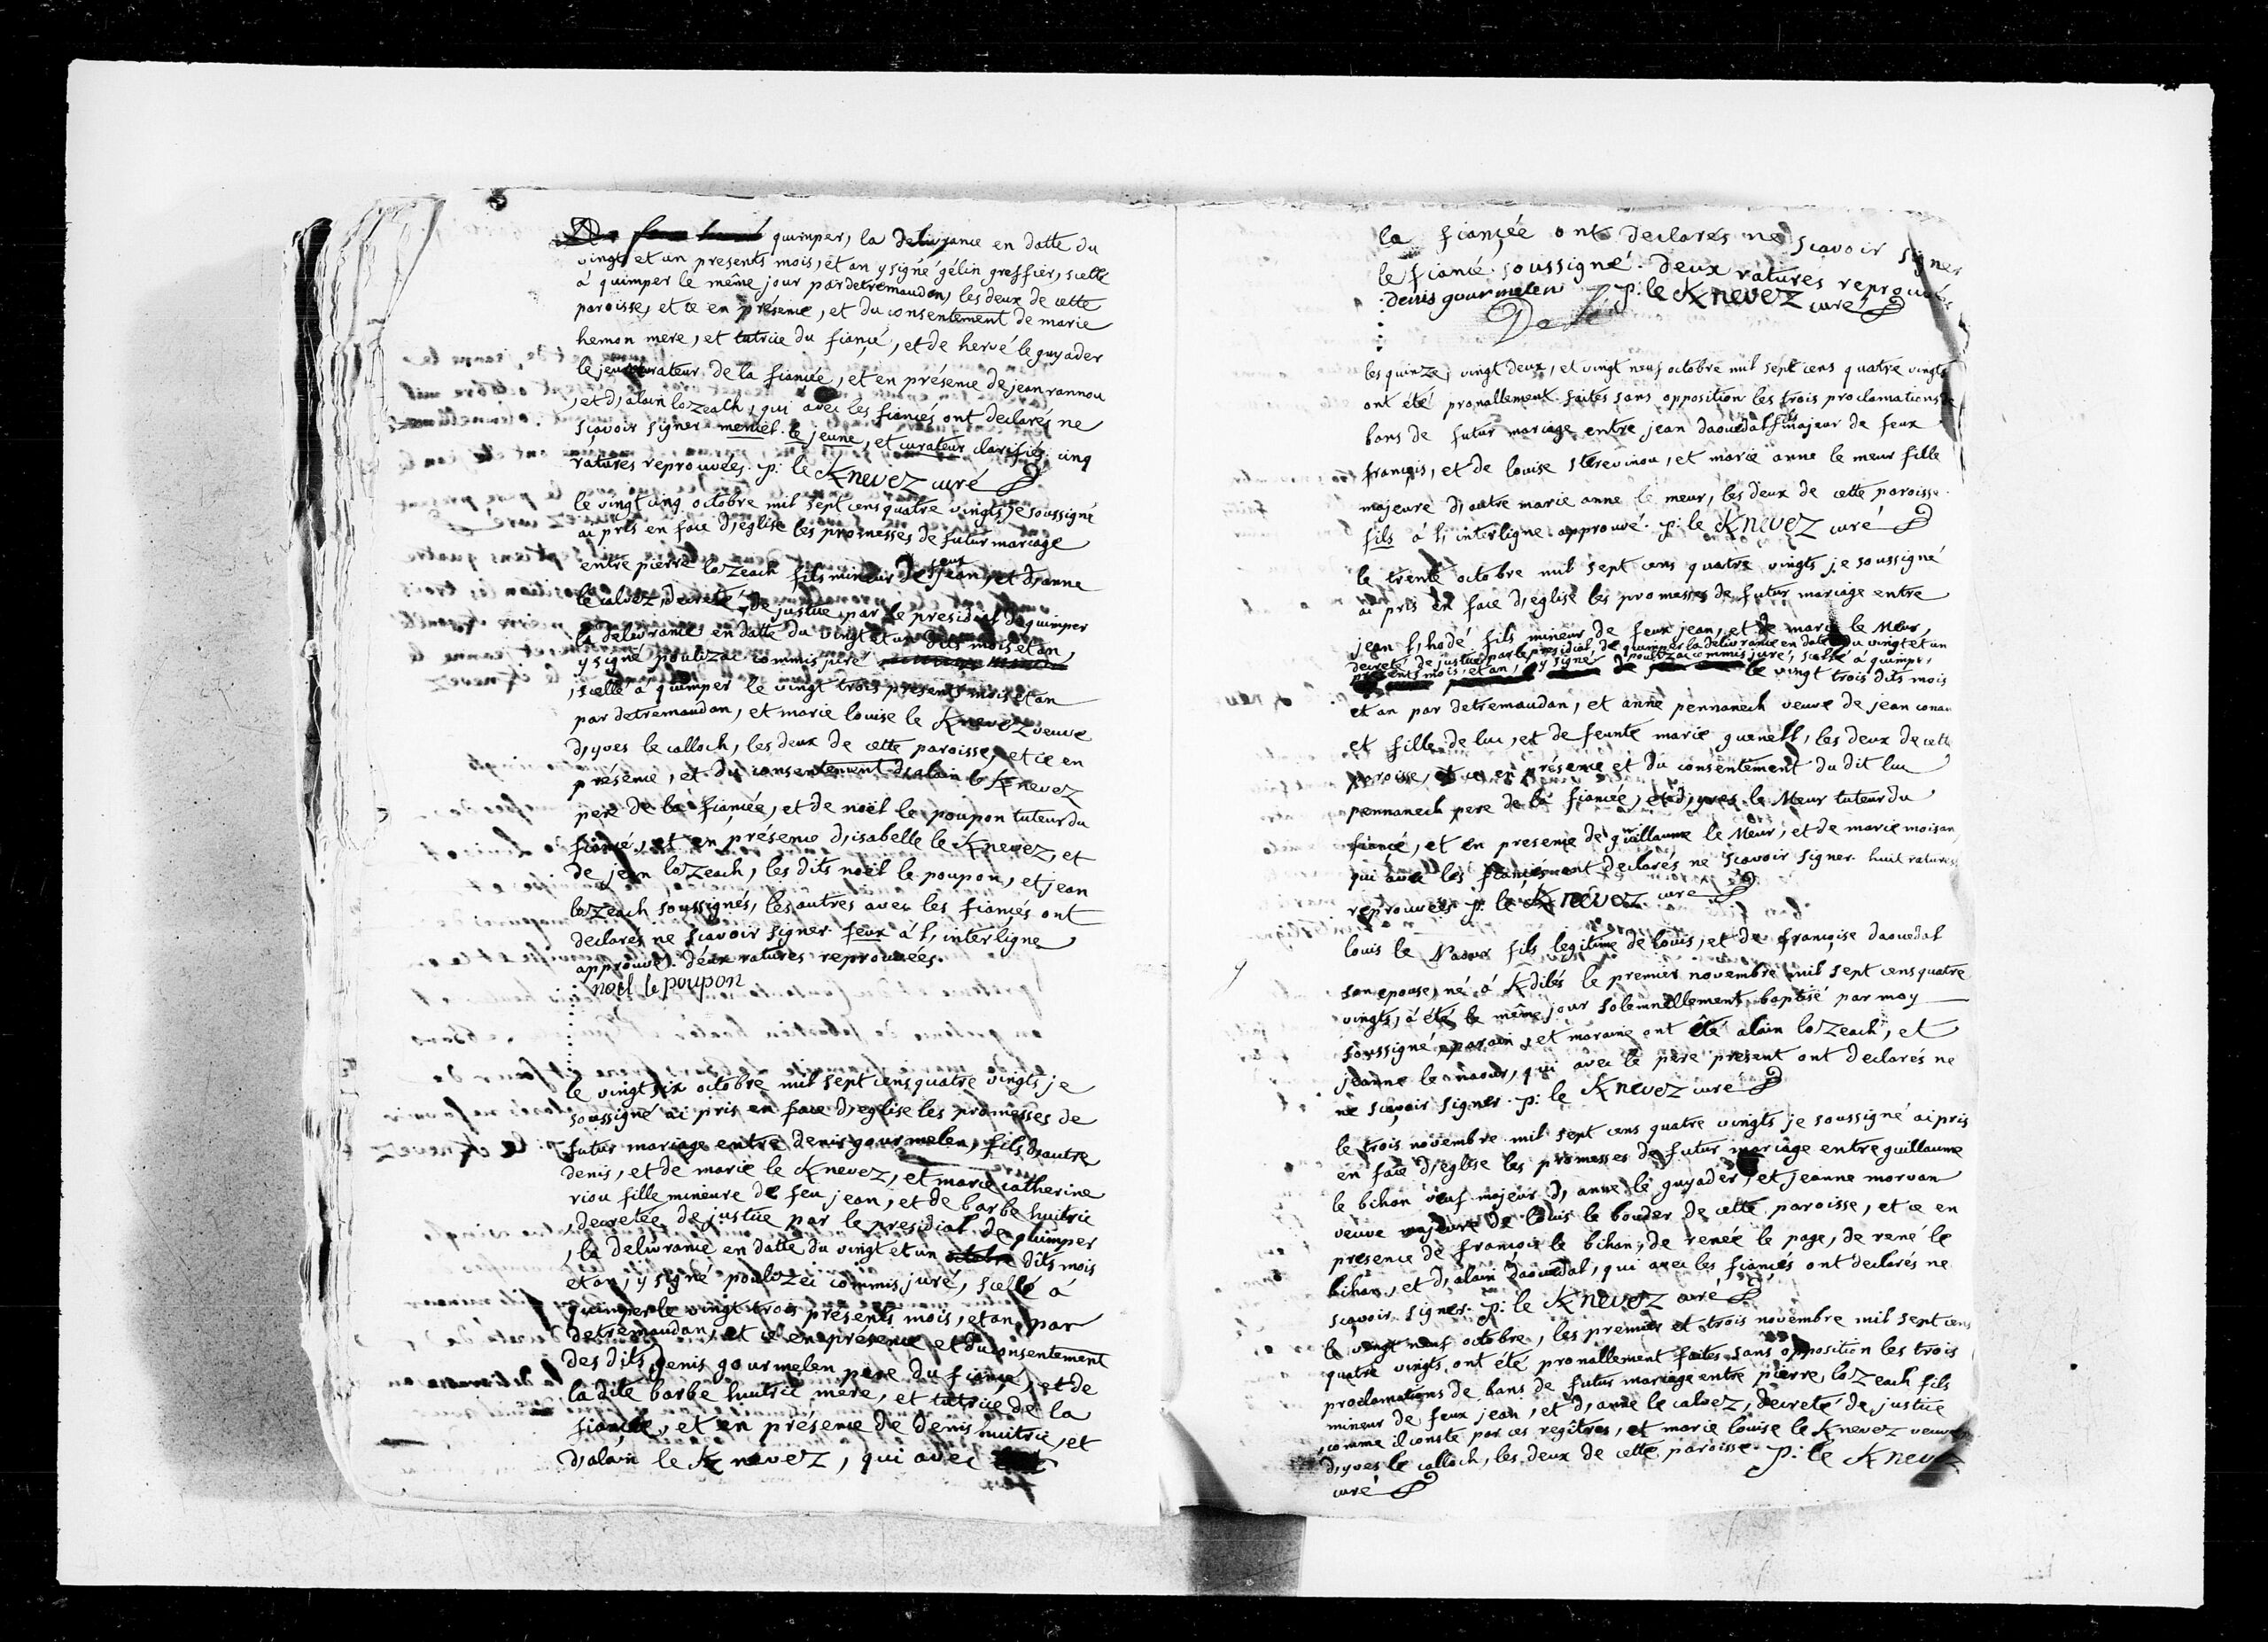 quimper, la delivrance en datte du
vingt et un presents mois, et an y signé gélin greffier, scellé
à quimper le même jour par detremaudan, les deux de cette
paroisse, et ce en présence, et du consentement de marie
hemon mere, et tutrice du fiancé, et de hervé le guyader
le jeune curateur de la fiancée, et en présence de jean rannou
, et d, alain lozeach, qui avec les fiancés ont declarés ne
scavoir signer. le jeune, et curateur clarifiés. cinq
ratures reprouvées. p: le Knevez curé
le vingt cinq octobre mil sept cens quatre vingts, je soussigné
ai pris en face d, eglise les promesses de futur mariage
entre pierre lozeach fils mineur de feux jean, et d, anne
le calvez, decreté de justice par le presidial de quimper
la delivrance en datte du vingt et un dits mois et an,
y signé poulizac commis juré
, scellé à quimper le vingt trois présents mois et an
par detremaudan, et marie louise le Knevez veuve
d, yves le calloch, les deux de cette paroisse, et ce en
présence, et du consentement d, alain le Knevez
pere de la fiancée, et de noël le poupon tuteur du
fiancé, et en présence d, isabelle le Knevez, et
de jean lozeach, les dits noël le poupon, et jean
lozeach soussignés, les autres avec les fiancés ont
declarés ne scavoir signer. feux à l, interligne
approuvé. deux ratures reprouvées.
noël le poupon
le vingt six octobre mil sept cens quatre vingts je
soussigné ai pris en face d, eglise les promesses de
futur mariage entre denis gourmelen, fils d, autre
denis, et de marie le Knevez, et marie catherine
riou fille mineure de feu jean, et de barbe huitric
, decretée de justice par le presidial de quimper
, la delivrance en datte du vingt et un octobre dits mois
et an, y signé poulizac commis juré, scellé à
quimper le vingt trois présents mois, et an, par
detremaudan, et ce en présence et du consentement
des dits denis gourmelen pere du fiancé, et de
la dite barbe huitric mere, et tutrice de la
fiancée, et en présence de denis huitric, et
d, alain le Knevez, qui avec
la fiancée ont declarés ne scavoir signer
le fiancé soussigné. deux ratures reprouvées
denis gourmelen p: le Knevez curé
les quinze, vingt deux, et vingt neuf octobre mil sept cens quatre vingts
ont été pronallement faites sans opposition les trois proclamations de
bans de futur mariage entre jean daouedal fils majeur de feux
françois, et de louise sterevinou, et marie anne le meur fille
majeure d, autre marie anne le meur, les deux de cette paroisse.
fils à l, interligne approuvé. p: le Knevez curé
le trente octobre mil sept cens quatre vingts je soussigné
ai pris en face d, eglise les promesses de futur mariage entre
jean l, hodé fils mineur de feux jean, et de marie le Meur,
decreté de justice par le presidial de quimper la delivrance en datte du vingt et un
présents mois, et an, y signé poulizac commis juré, scellé à quimper
le vingt trois dits mois
et an par detremaudan, et anne pennanech veuve de jean conan
et fille de luc, et de feunte marie guenell, les deux de cette
paroisse, et ce en présence et du consentement du dit luc
pennanech pere de la fiancée, et d, yves le Meur tuteur du
fiancé, et en presence de guillaume le Meur, et de marie moisan,
qui avec les fiancés ont declarés ne scavoir signer. huit ratures
reprouvées p: le Knevez curé
louis le naour fils legitime de louis, et de françoise daouedal
son epouse, né à Kdilés le premier novembre mil sept cens quatre
vingts, a été le même jour solemnellement baptisé par moy
soussigné, parain, et maraine ont été alain lozeach, et
jeanne le naour, qui avec le pere présent ont declarés ne
ne scavoir signer. p: le Knevez curé
le trois novembre mil sept cens quatre vingts je soussigné ai pris
en face d, eglise les promesses de futur mariage entre guillaume
le bihan veuf majeur d, anne le guyader, et jeanne morvan
veuve majeure de louis le bouder de cette paroisse, et ce en
presence de françois le bihan, de renée le page, de rené le
bihan, et d, alain daouedal, qui avec les fiancés ont declarés ne
scavoir signer. p: le Knevez curé
le vingt neuf octobre, les premier et trois novembre mil sept cens
quatre vingts ont été pronallement faites sans opposition les trois
proclamations de bans de futur mariage entre pierre lozeach fils
mineur de feux jean, et d, anne le calvez, decreté de justice
, comme il conste par ces regîtres, et marie louise le Knevez veuve
d, yves le calloch, les deux de cette paroisse. p: le Knevez
curé